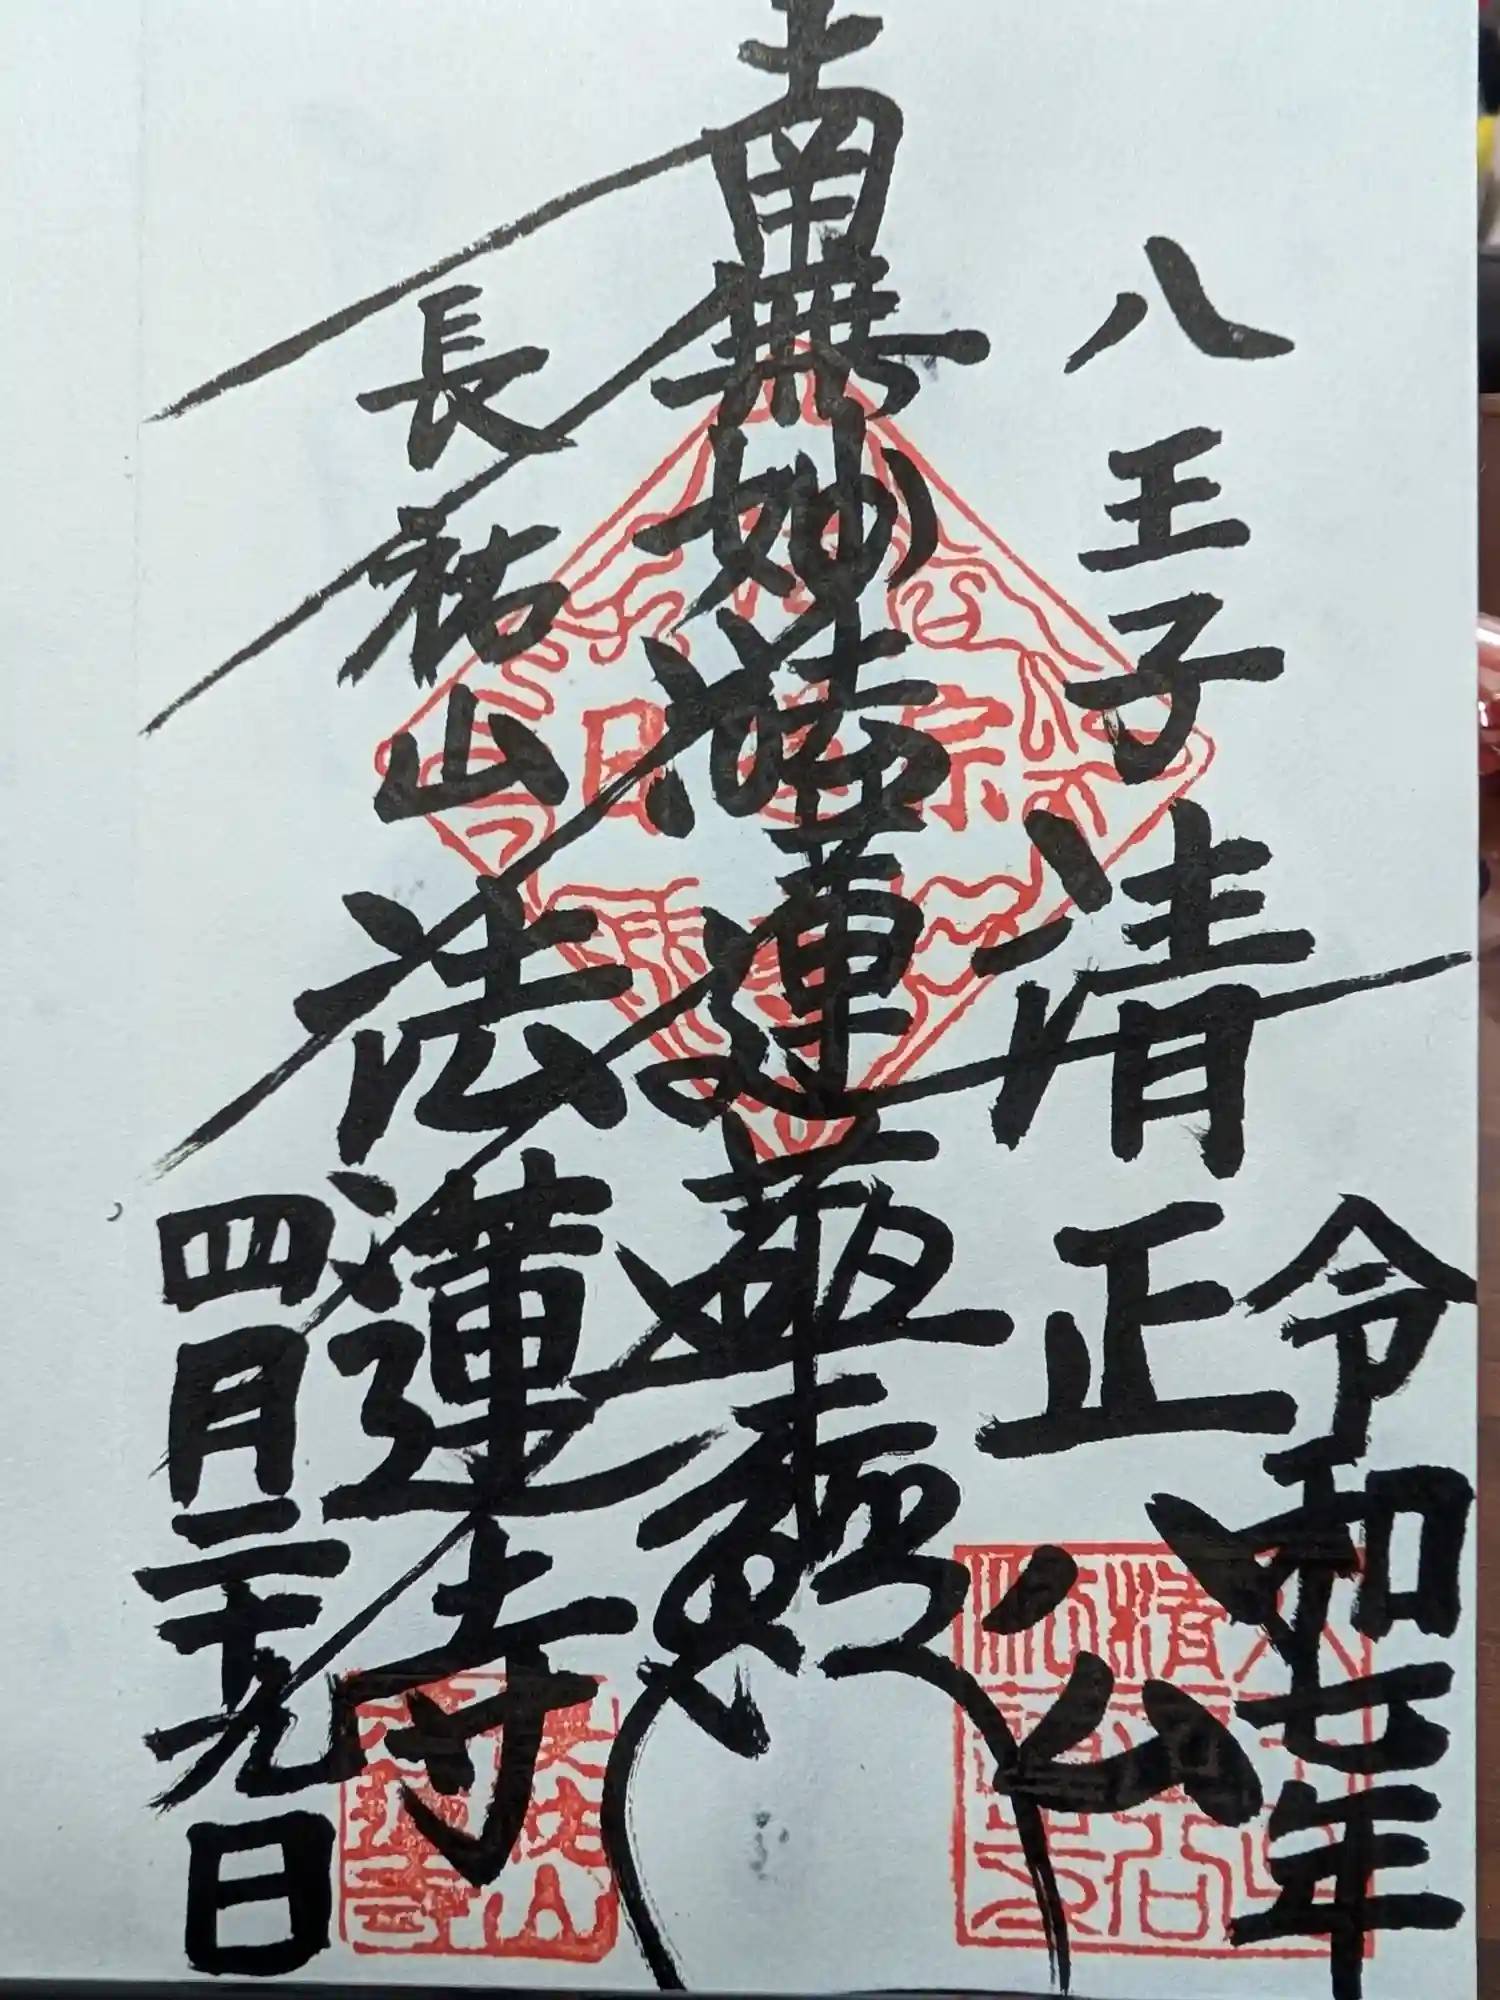 令和七年
八王子 清正公
南無妙法蓮華経
長祐山 法蓮寺
四月二十九日
日蓮宗